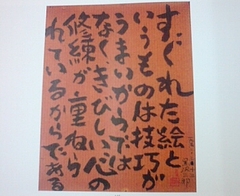 すぐれた絵と
いうものは技巧が
うまいからでは
なく、きびしい心の
修練が重ねら
れているからである